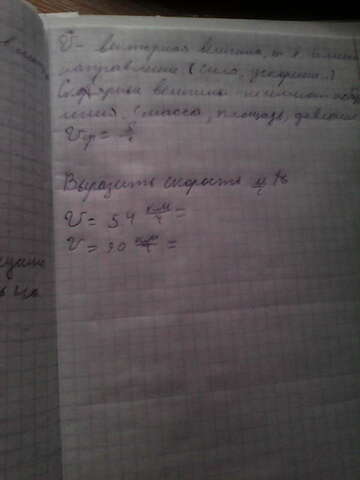 V̄ - векторная величина, т.к. имеет
направление (сила, ускорение..)
Скалярная величина не имеет
ления, (масса, площадь, давление
Vср = S/t
Выразить скорость м/с
V = 54 км/ч =
V = 90 км/ч =